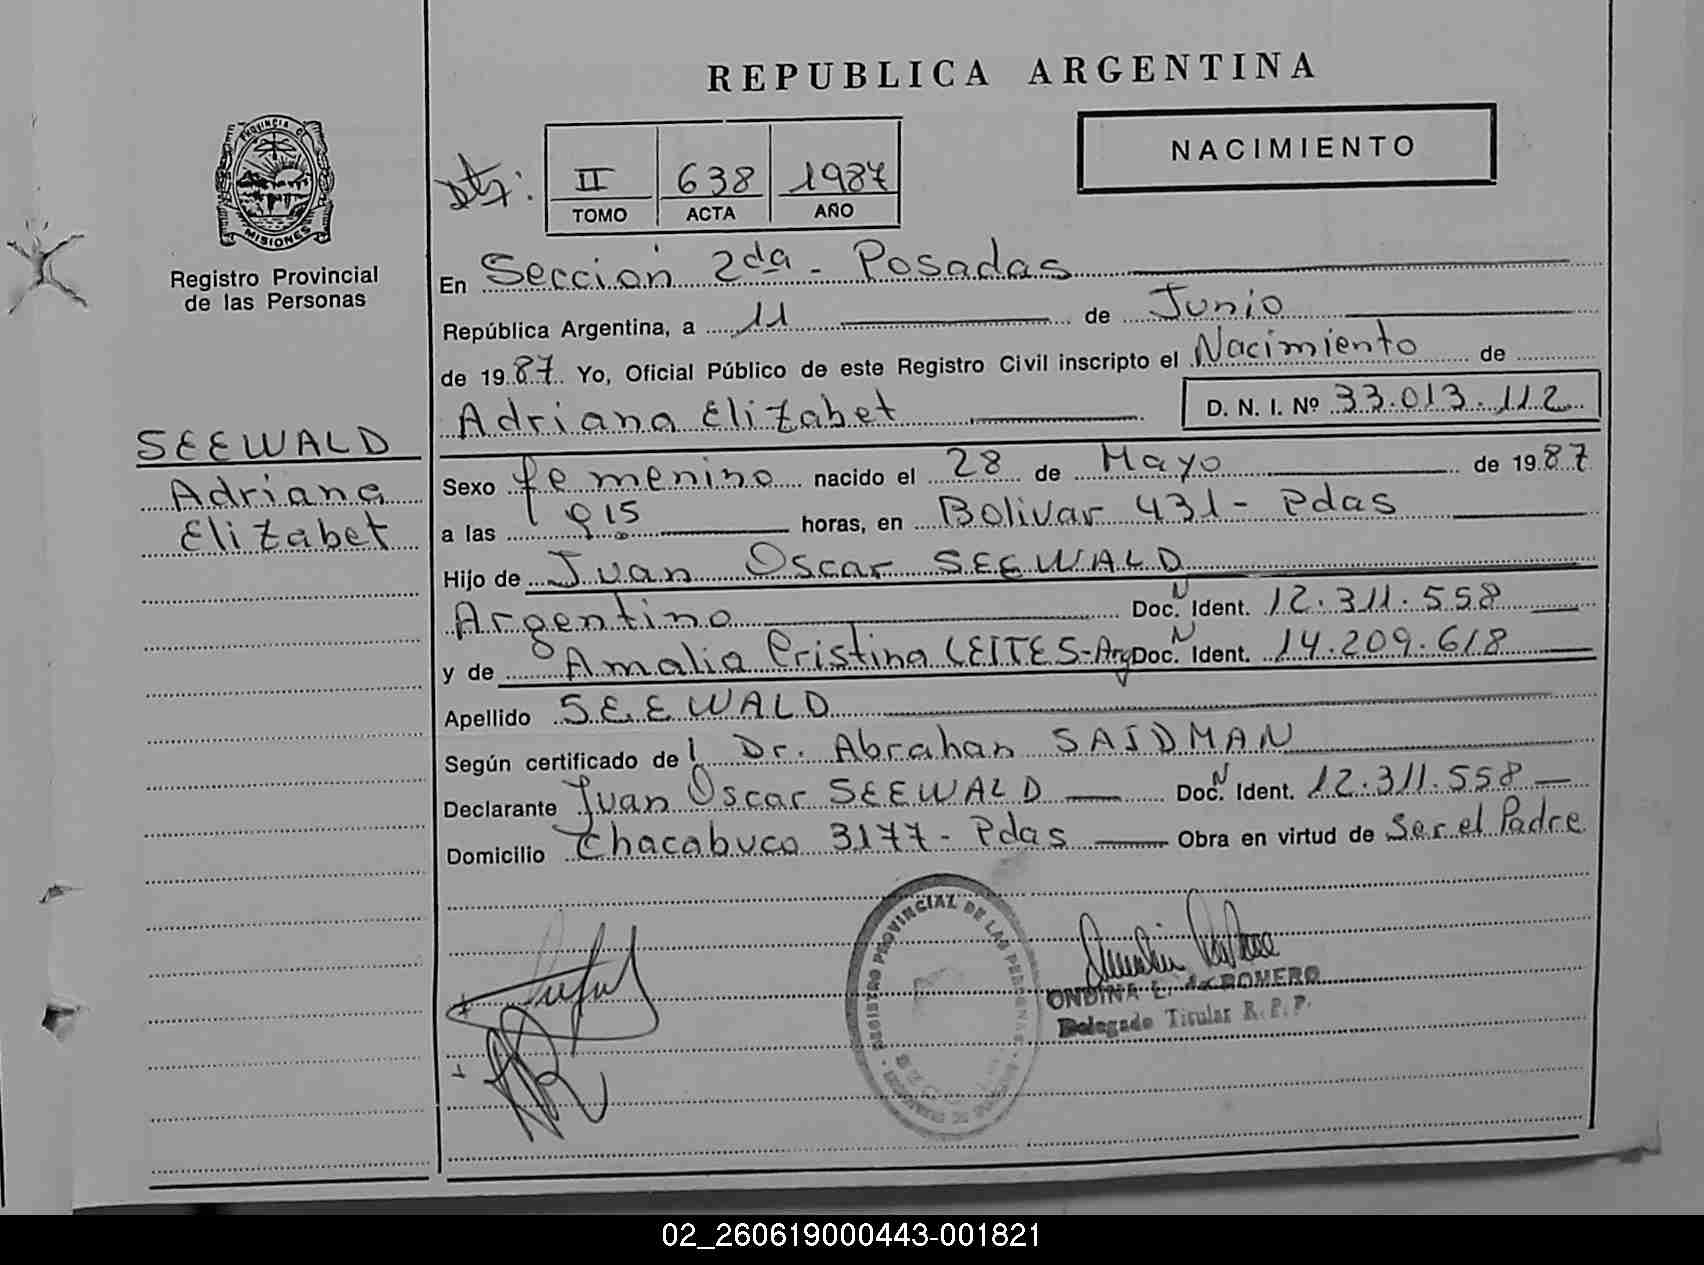 REPUBLICA ARGENTINA
PROVINCIA D
MISIONES
Registro Provincial
de las Personas
II 638 1987
TOMO ACTA AÑO
NACIMIENTO
En Sección 2da - Posadas
República Argentina, a 11 de Junio
de 1987 Yo, Oficial Público de este Registro Civil inscripto el Nacimiento de
Adriana Elizabet D. N. I. Nº 33.013.112
SEEWALD
Adriana
Elizabet
Sexo femenino nacido el 28 de Mayo de 1987
a las 9.15 horas, en Bolivar 431 - Pdas
Hijo de Juan Oscar SEEWALD
Argentino Doc. N Ident. 12.311.558
y de Amalia Cristina LEITES-Arg Doc. N Ident. 14.209.618
Apellido SEEWALD
Según certificado del Dr. Abrahan SAIDMAN
Declarante Juan Oscar SEEWALD Doc. N Ident. 12.311.558
Domicilio Chacabuco 3177 - Pdas Obra en virtud de Ser el Padre
REGISTRO PROVINCIAL DE LAS PERSONAS
ONDINA E. ROMERO
Delegado Titular R. P. P.
02_260619000443-001821